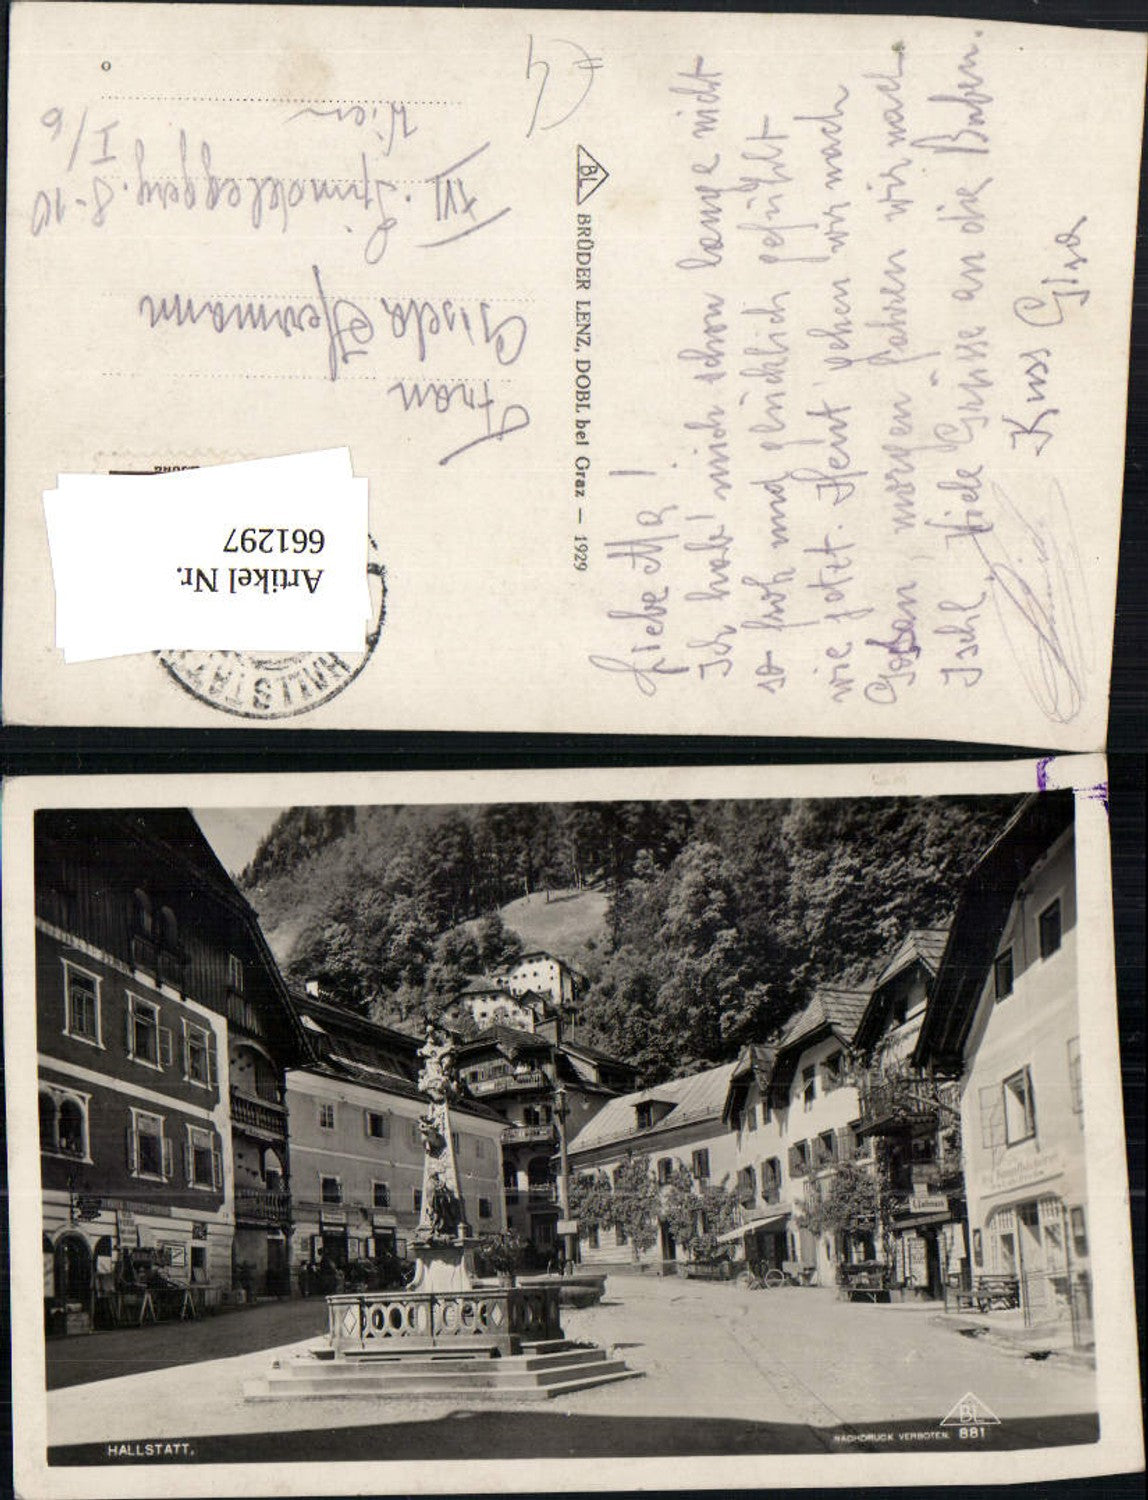 Liebe Mq!
Ich hab' mich schon lange nicht
so froh und glücklich gefühlt
wie jetzt. Heut' gehen wir nach
Gosau, morgen fahren wir nach
Ischl. Viele Grüsse an die Buben.
Kuss
BL BRÜDER LENZ, DOBL bei Graz — 1929
€4
Frau
Gisela Herrmann
XVI. 8-10
I/6
Wien
Artikel Nr.
661297
HALLSTATT
HALLSTATT,
BL
NACHDRUCK VERBOTEN. 881